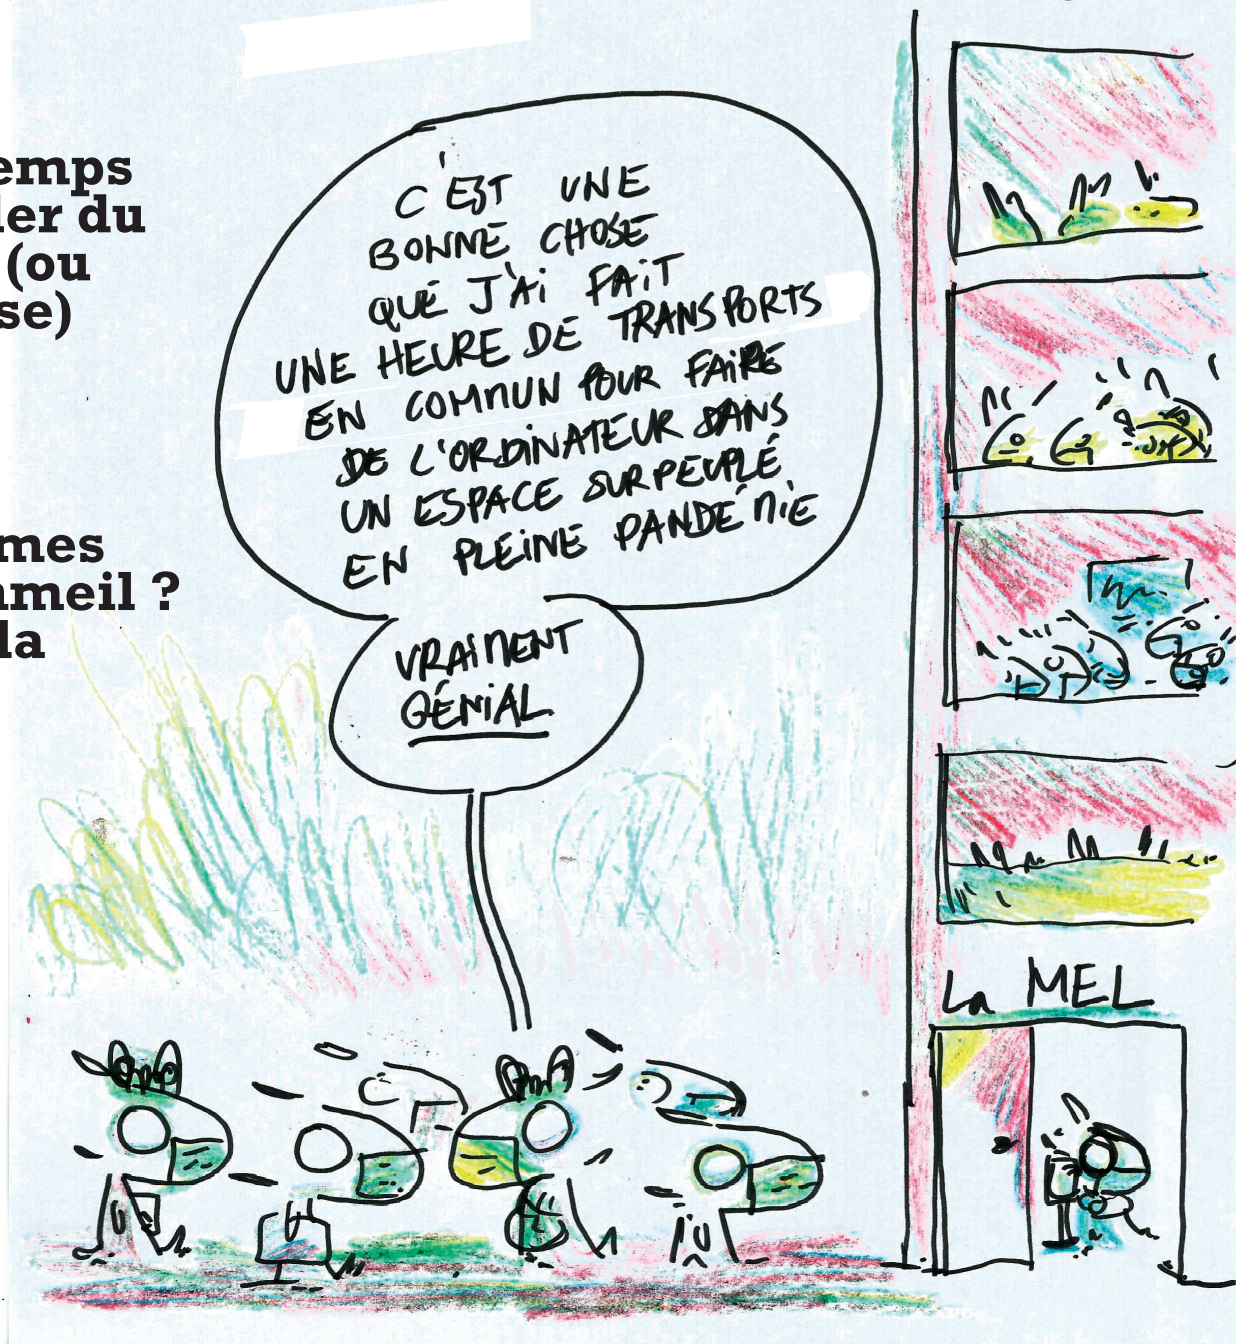 emps
ler du
(ou
se)
mes
meil ?
la
C'EST UNE
BONNE CHOSE
QUE J'AI FAIT
UNE HEURE DE TRANSPORTS
EN COMMUN POUR FAIRE
DE L'ORDINATEUR DANS
UN ESPACE SURPEUPLÉ
EN PLEINE PANDÉMIE
VRAIMENT
GÉNIAL
La MEL